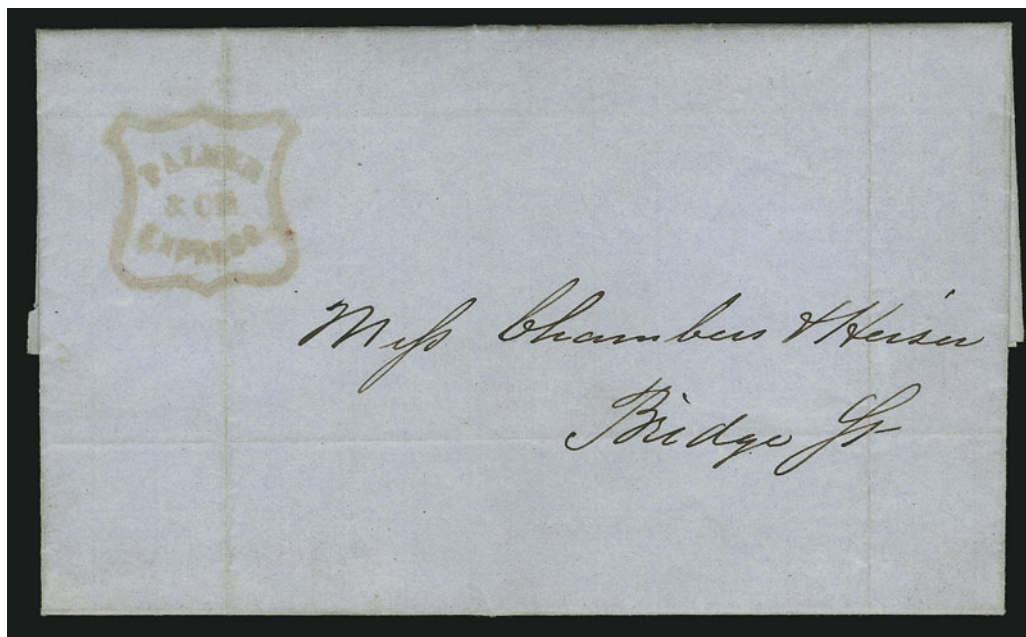 PALMER
& CO.
EXPRESS.
Mess Chambers & Heiser
Bridge St